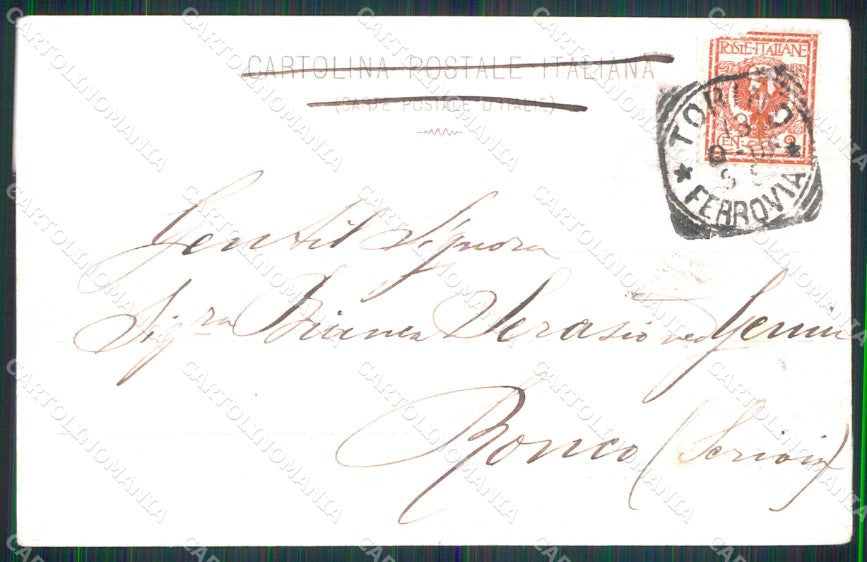 CARTOLINA POSTALE ITALIANA
(CARTE POSTALE D'ITALIE)
POSTE-ITALIANE
CEN. 2
TORINO
FERROVIA
Gentil Signora
Sig.ra Bianca Verasio ved
Ronco (Scrivia)
CARTOLINOMANIA